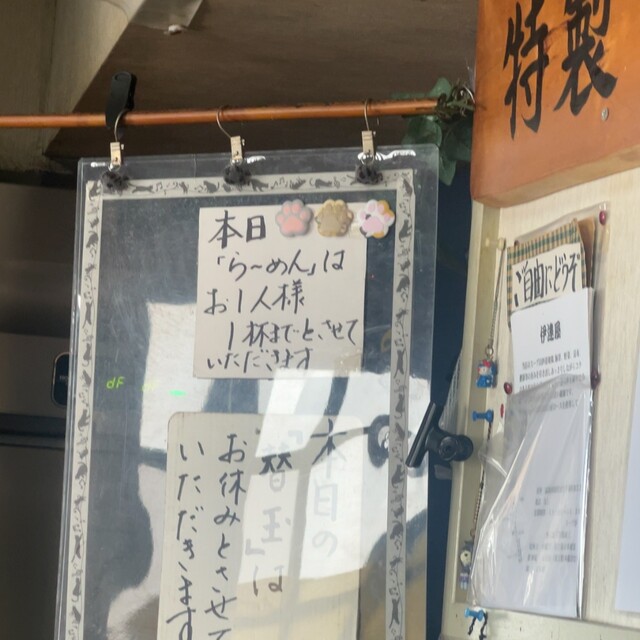 特製
本日
「ら〜めん」は
お1人様
1杯までとさせて
いただきます
本日の
「替玉」は
お休みとさせて
いただきます
ご自由にどうぞ